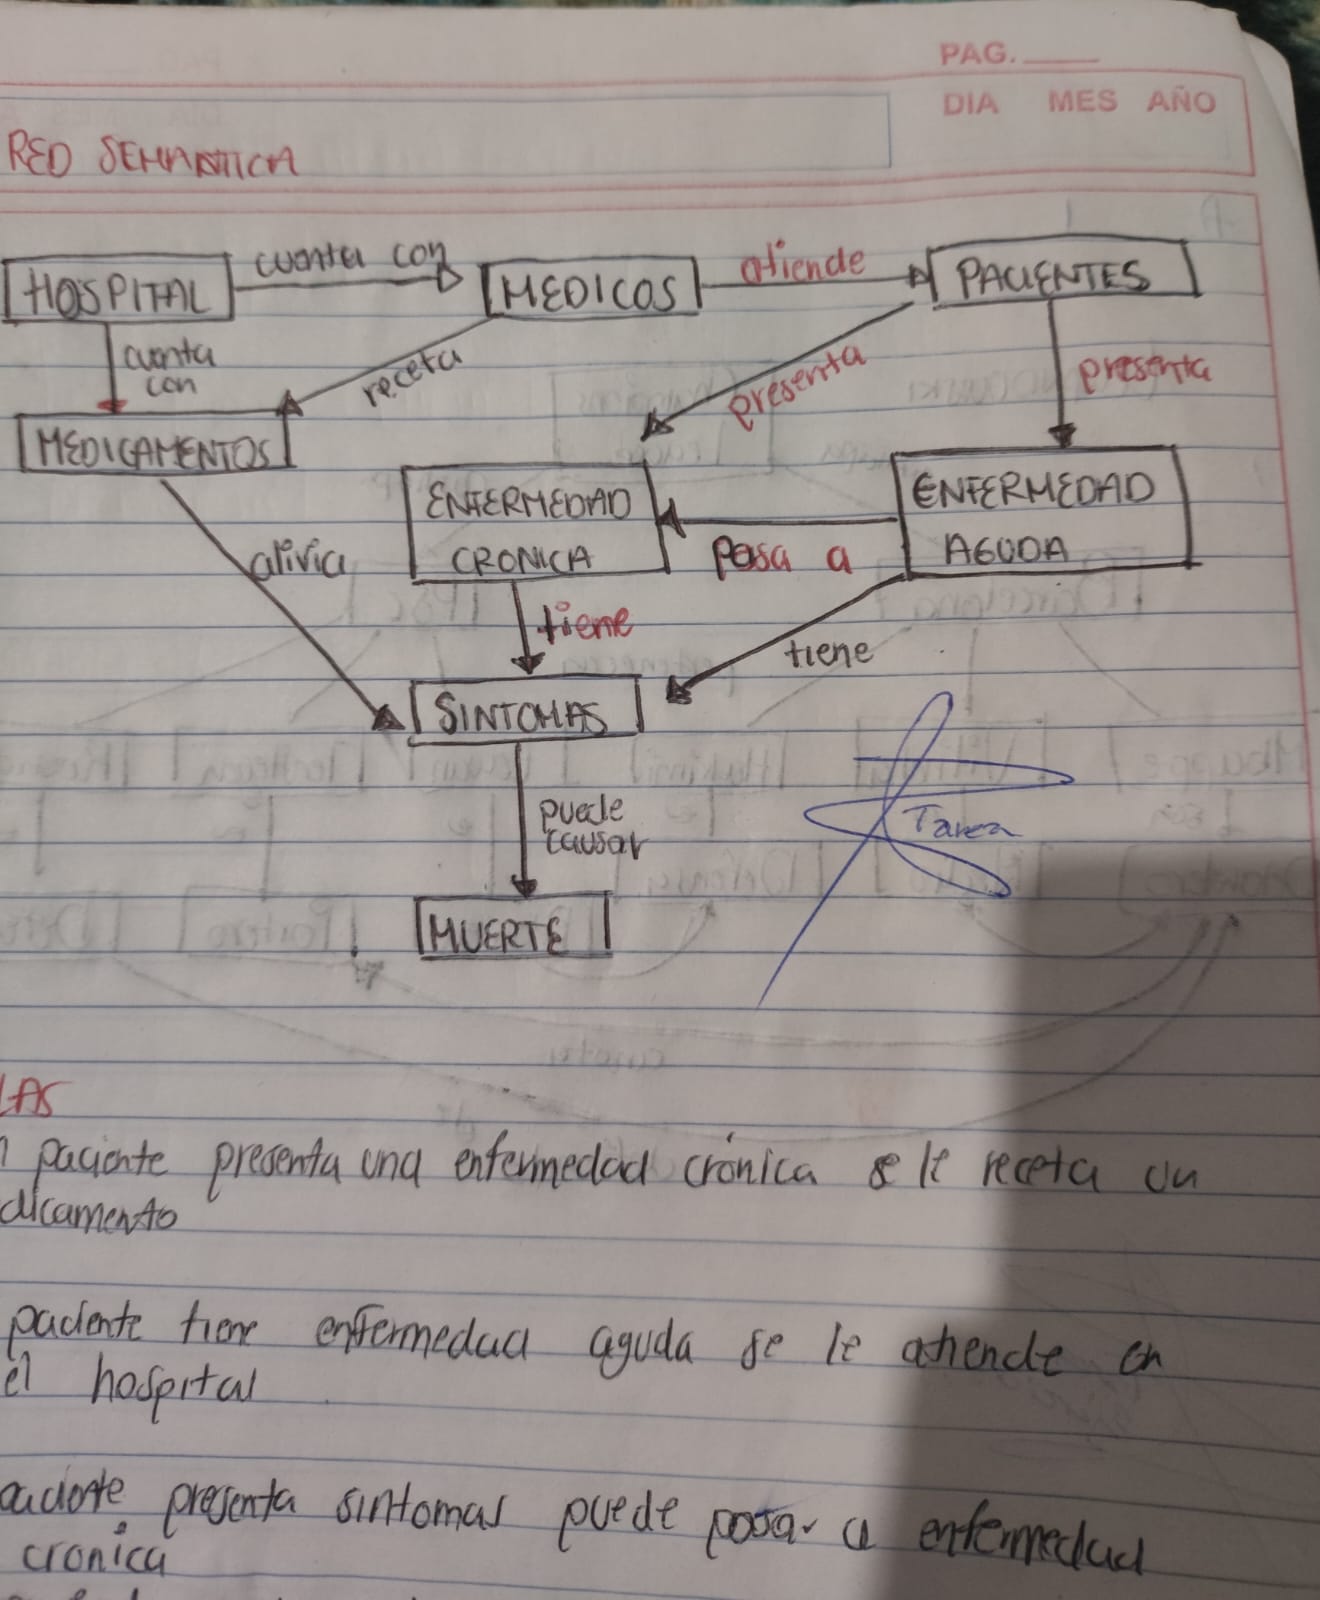 PAG.
DIA MES AÑO
RED SEMANTICA
HOSPITAL
cuenta con
MEDICOS
atiende
PACIENTES
cuenta
con
receta
presenta
presenta
MEDICAMENTOS
ENFERMEDAD
CRONICA
ENFERMEDAD
AGUDA
alivia
Pasa a
tiene
tiene
SINTOMAS
puede
causar
Tarea
MUERTE
LAS
paciente presenta una enfermedad crónica se le receta un
dicamento
paciente tiene enfermedad aguda se le atiende en
el hospital
presenta sintomas puede pasar a enfermedad
cronica